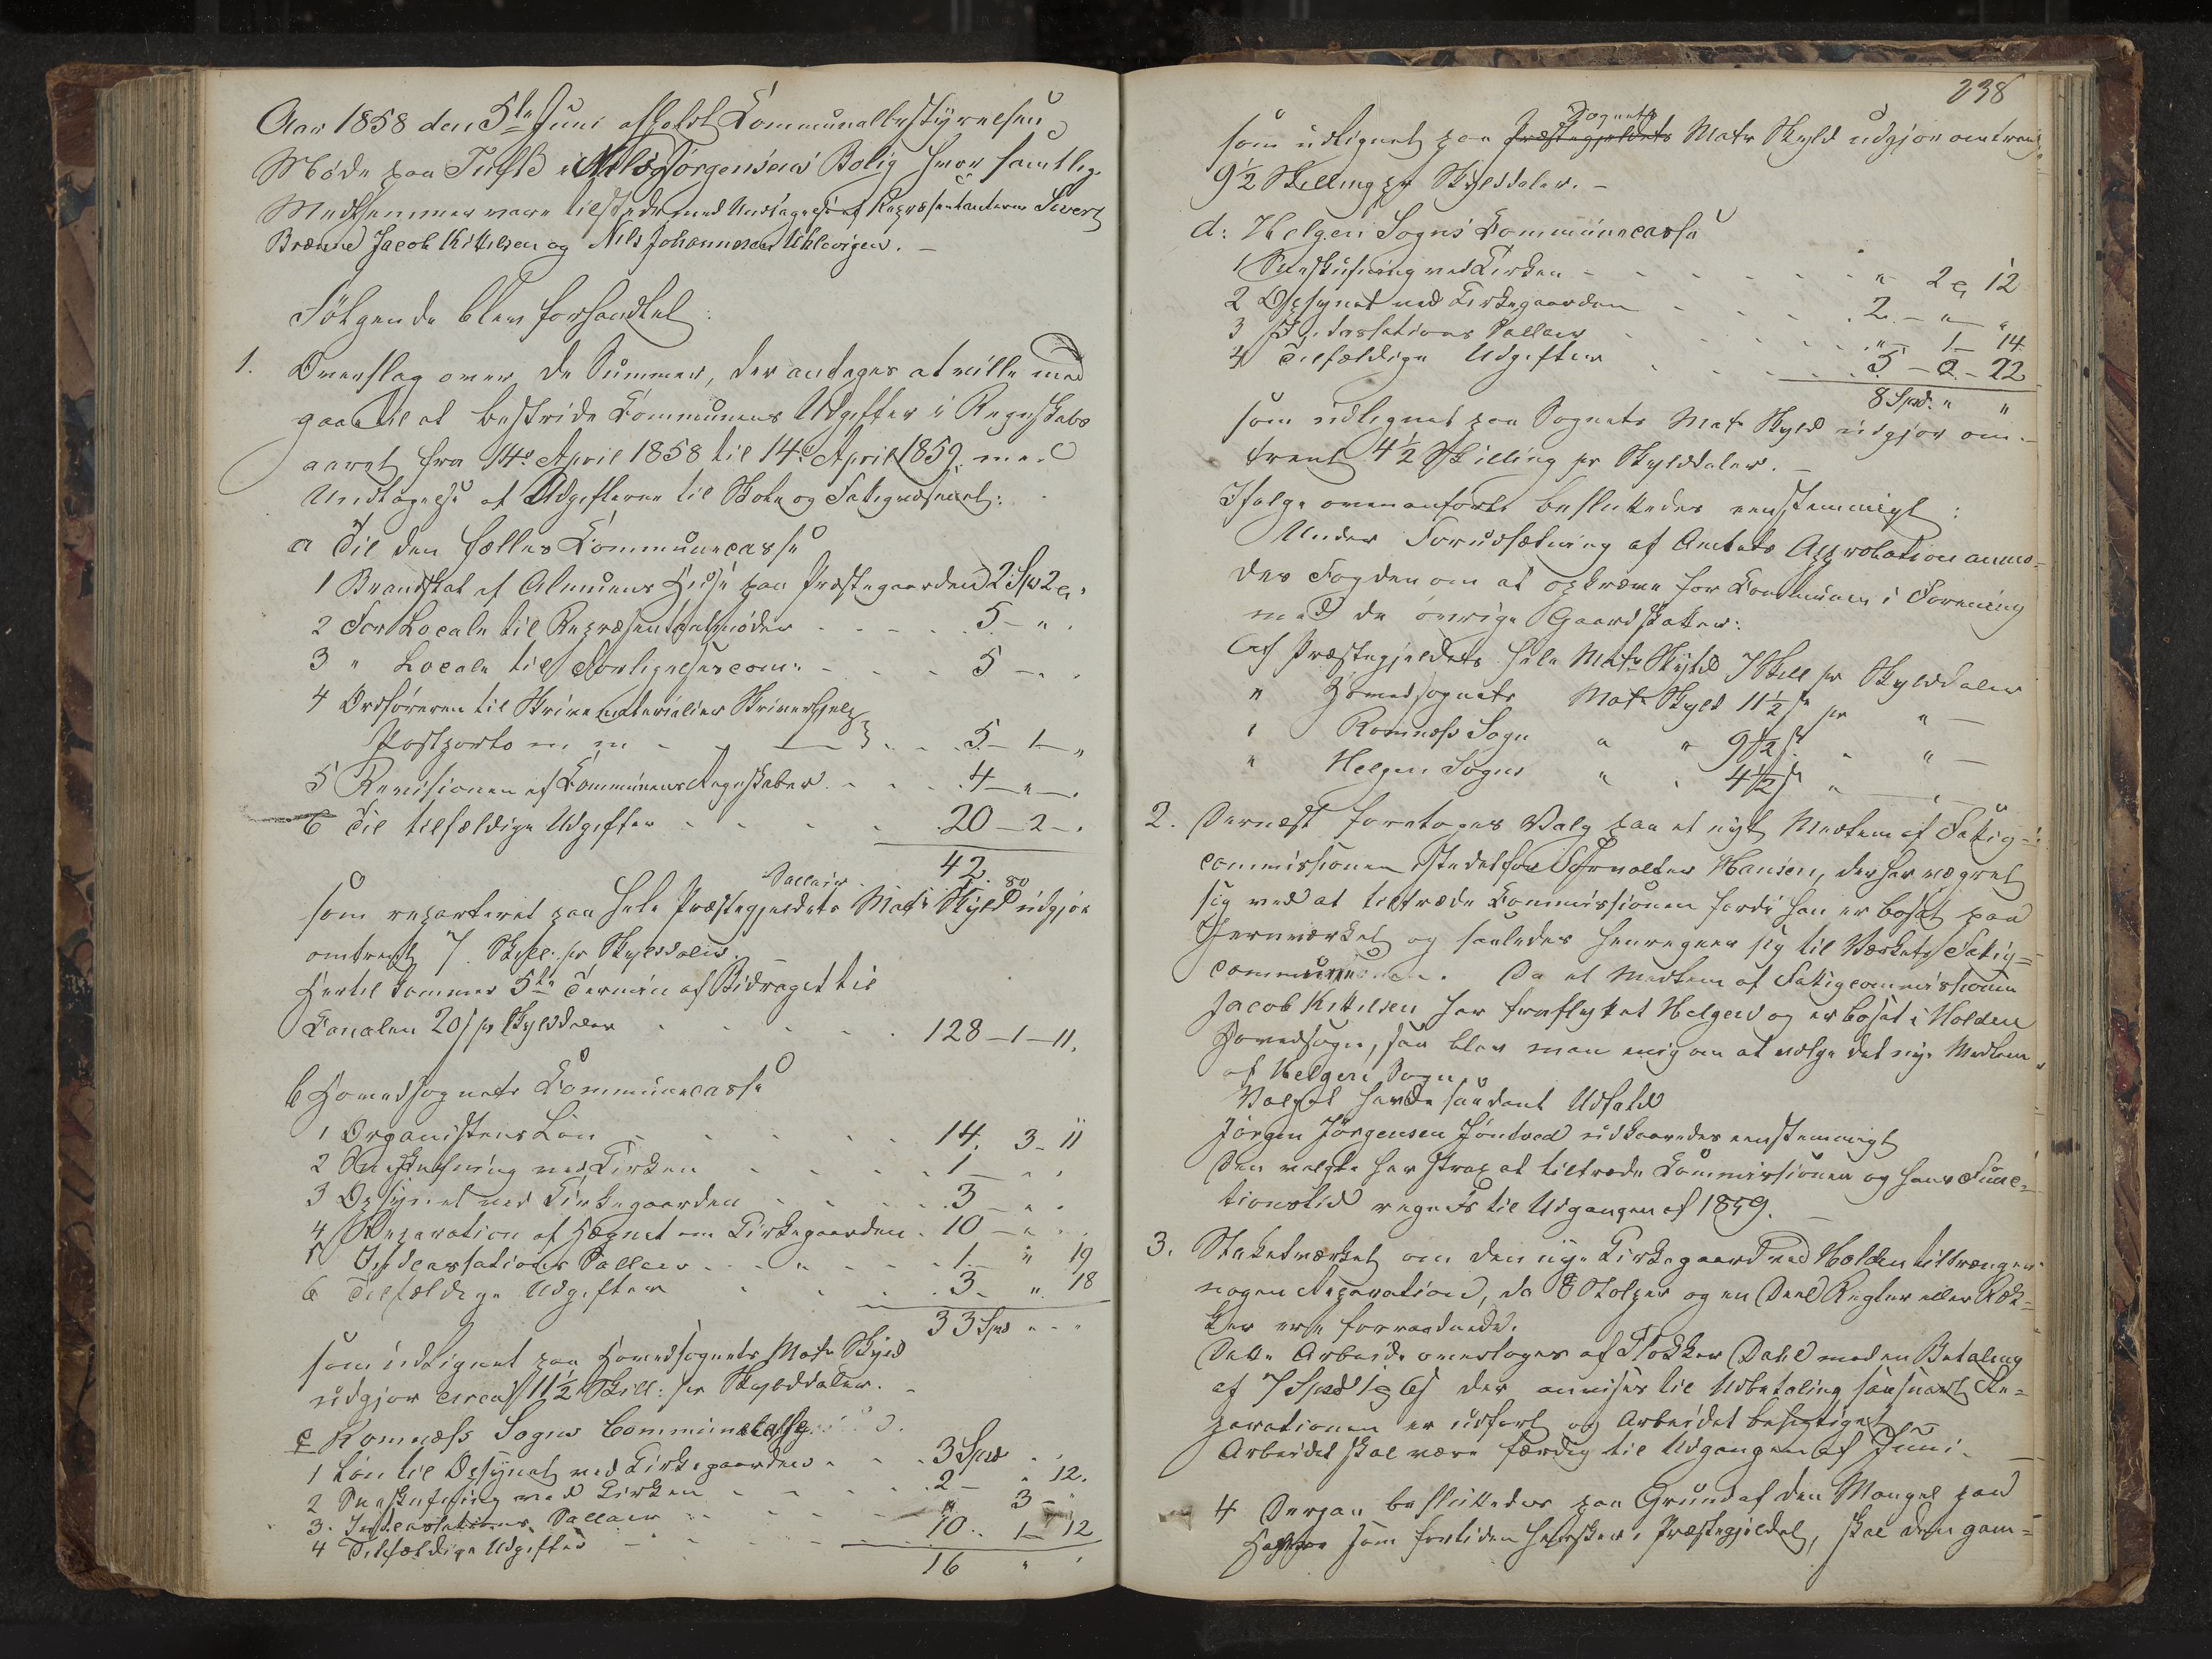 Aar 1858 den 5te Juni afholdt Communalbestyrelsen
Møde paa Tufte i Nils Torgersens Bolig hvor samtlige
Medlemmer vare tilstede med Undtagelse af Repræsentanterne Sivert
Brænne Jacob Kittilsen og Nils Johannesen Uhlevigen. –
Følgende blev forhandlet:
1. Overslag over de Summer, der antages at ville med
gaae til at bestride Communens Udgifter i Regnskabs
aaret fra 14de April 1858 til 14de April 1859. med
Undtagelse af Udgifterne til Skole og Fatigvæsenet:
a Til den fælles Communecasse
1 Brandskat af Almuens Huse paa Præstegaarden 2 Spd 2 "
2 For Locale til Repræsentantmøder - - - 5 - " .
3 " Locale til Forligelsescom: - - - 5 - . .
4 Ordføreren til Skrivematerialier Skriverhjelp
Postporto m m - - - 5 - 1 - "
5 Revisionen af Communens Regnskaber - - - 4 - " - .
6 Til tilfældige Udgifter - - - - 20 - 2 - .
42.
som reparteret paa hele Præstegjeldets Matr Skyld udgjør
omtrent 7 Skill: pr Skylddaler.
Hertil kommer 5te Termin af Bidraget til
Canalen 20 s pr Skylddaler - - - - 128 - 1 - 11.
b Hovedsognets Communecasse
1 Organistens Løn - - - - 14. 3 - 11
2 Sneskufning ved Kirken - - - - 1 - " .
3 Opsynet ved Kirkegaarden - - - 3 - " .
4 Reparation af Hegnet om Kirkegaarden . 10 - " .
5 Indcassations Sallair - - - - 1 " 19
6 Tilfældige Udgifter - - - 3 - " 18
33 Spd " "
som udlignet paa Hovedsognets Matr Skyld
udgjør circa 11½ Skill: pr Skylddaler. –
c Romnæss Sogns Communecasse
1 Løn til Opsynet ved Kirkegaarden - - - 3 Spd " .
2 Sneskufning ved Kirken - - - - 2 - " 12.
3. Indcassations Sallair - - - - " 3 - "
4 Tilfældige Udgifter - - - - 10 . 1 - 12
16 " "
238
Sognets
som udlignet paa Præstegjeldets Matr Skyld udgjør omtrent
9½ Skilling pr Skylddaler. –
d: Helgen Sogns Communecasse
1 Sneskufning ved Kirken - - - - " 2 12
2 Opsynet ved Kirkegaarden - - - 2 - " - "
3 Indcassations Sallair - - - - " 1 - 14
4 Tilfældige Udgifter - - - - 5 - 2 - 22
8 Spd. " "
som udlignet paa Sognets Matr Skyld udgjør om-
trent 4½ Skilling pr Skylddaler. –
Ifølge ovenanførte besluttedes eenstemmigt:
Under Forudsætning af Amtets Approbation anmo-
des Fogden om at opkræve for Communen i Forening
med de øvrige Gaardskatter:
Af Præstegjeldets hele Matr Skyld 7 Skill pr Skylddaler
" Hovedsognets Matr Skyld 11½ s pr " -
" Romnæss Sogn " " 9½ s " " -
" Helgen Sogns " " 4½ s " - " -
2. Dernæst foretoges Valg paa et nyt Medlem af Fatig-
commissionen istedetfor Forvalter Hansen, der har vægret
sig ved at tiltræde Commissionen fordi han er bosat paa
Jernværket og saaledes henregner sig til Værkets Fatig-
commune. Da et Medlem af Fatigcommissionen
Jacob Kittilsen har fraflyttet Helgen og er bosat i Holden
Hovedsogn, saa blev man enig om at vælge det nye Medlem
af Helgen Sogn.
Valget havde saadant Udfald
Jørgen Jørgensen Jøntved udkaaredes eenstemmigt
Den valgte har strax at tiltræde Commissionen og hans Func-
tionstid regnes til Udgangen af 1859. –
3. Staketværket om den nye Kirkegaard ved Holden tiltrænger
nogen Reparation, da 8 Stolper og en Deel Regler eller Ræk-
ker ere forraadnede.
Dette Arbeide overtoges af Klokker Dahl mod en Betaling
af 7 Spd 1 6 s der anvises til Udbetaling saasnart Re-
parationen er udført og Arbeidet besigtiget
Arbeidet skal være færdig til Udgangen af Juni. –
4 Derpaa besluttedes paa Grund af den Mangel paa
som fortiden hersker i Præstegjeldet, skal den gam-